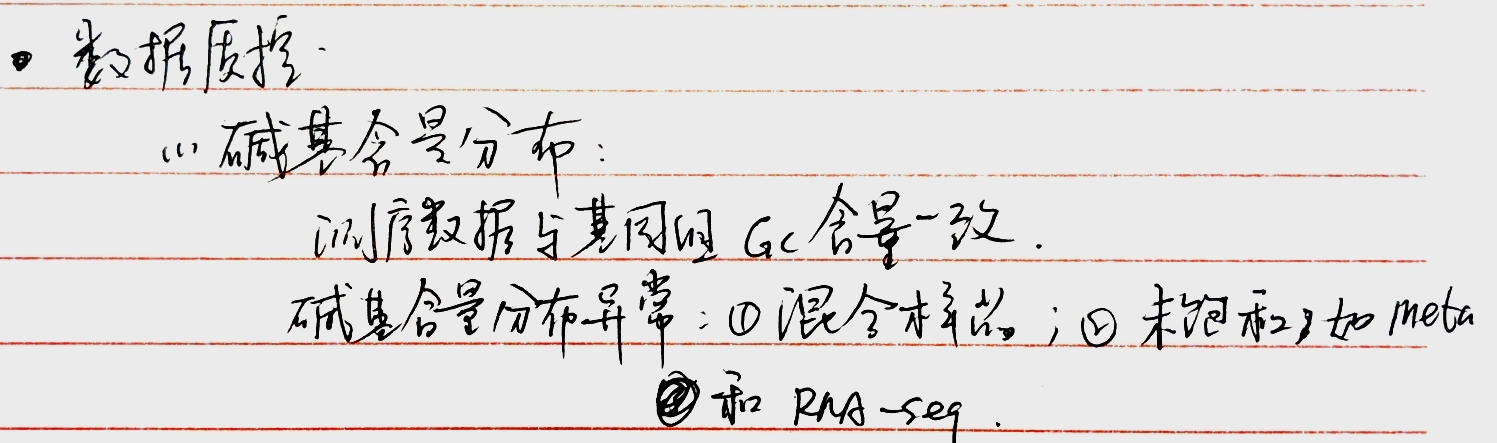 • 数据质控.
(1) 碱基含量分布:
测序数据与基因组 GC 含量一致.
碱基含量分布异常: ① 混合样品; ② 未饱和, 如 meta
和 RNA-seq.